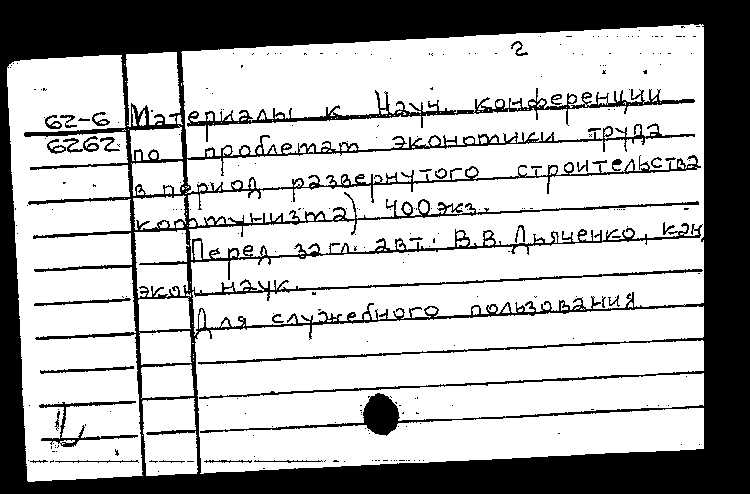 2
62-6
6262
Материалы к Науч. конференции
по проблемам экономики труда
в период развернутого строительства
коммунизма). 400 экз.
Перед загл. авт.: В.В. Дьяченко, кан
экон. наук.
Для служебного пользования